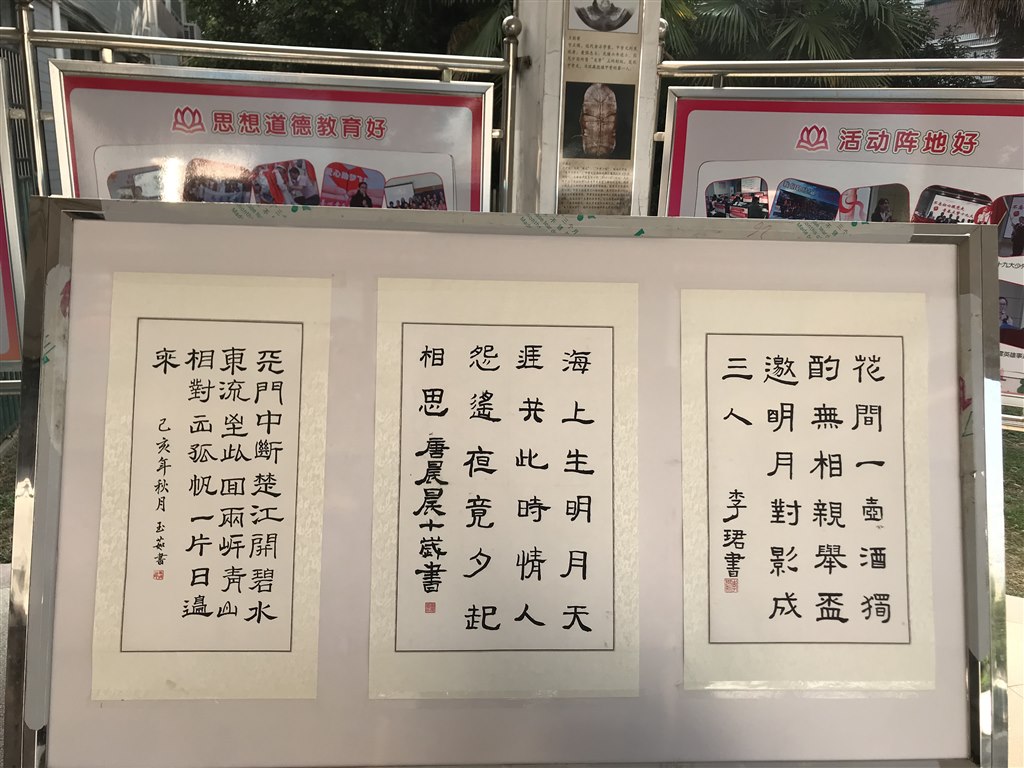 思想道德教育好
活动阵地好
花間一壺酒獨
酌無相親舉盃
邀明月對影成
三人
李珺書
海上生明月天
涯共此時情人
怨遙夜竟夕起
相思
唐晨晨十歲書
天門中斷楚江開碧水
東流至此回兩岸青山
相對出孤帆一片日邊
來
己亥年秋月
玉英書